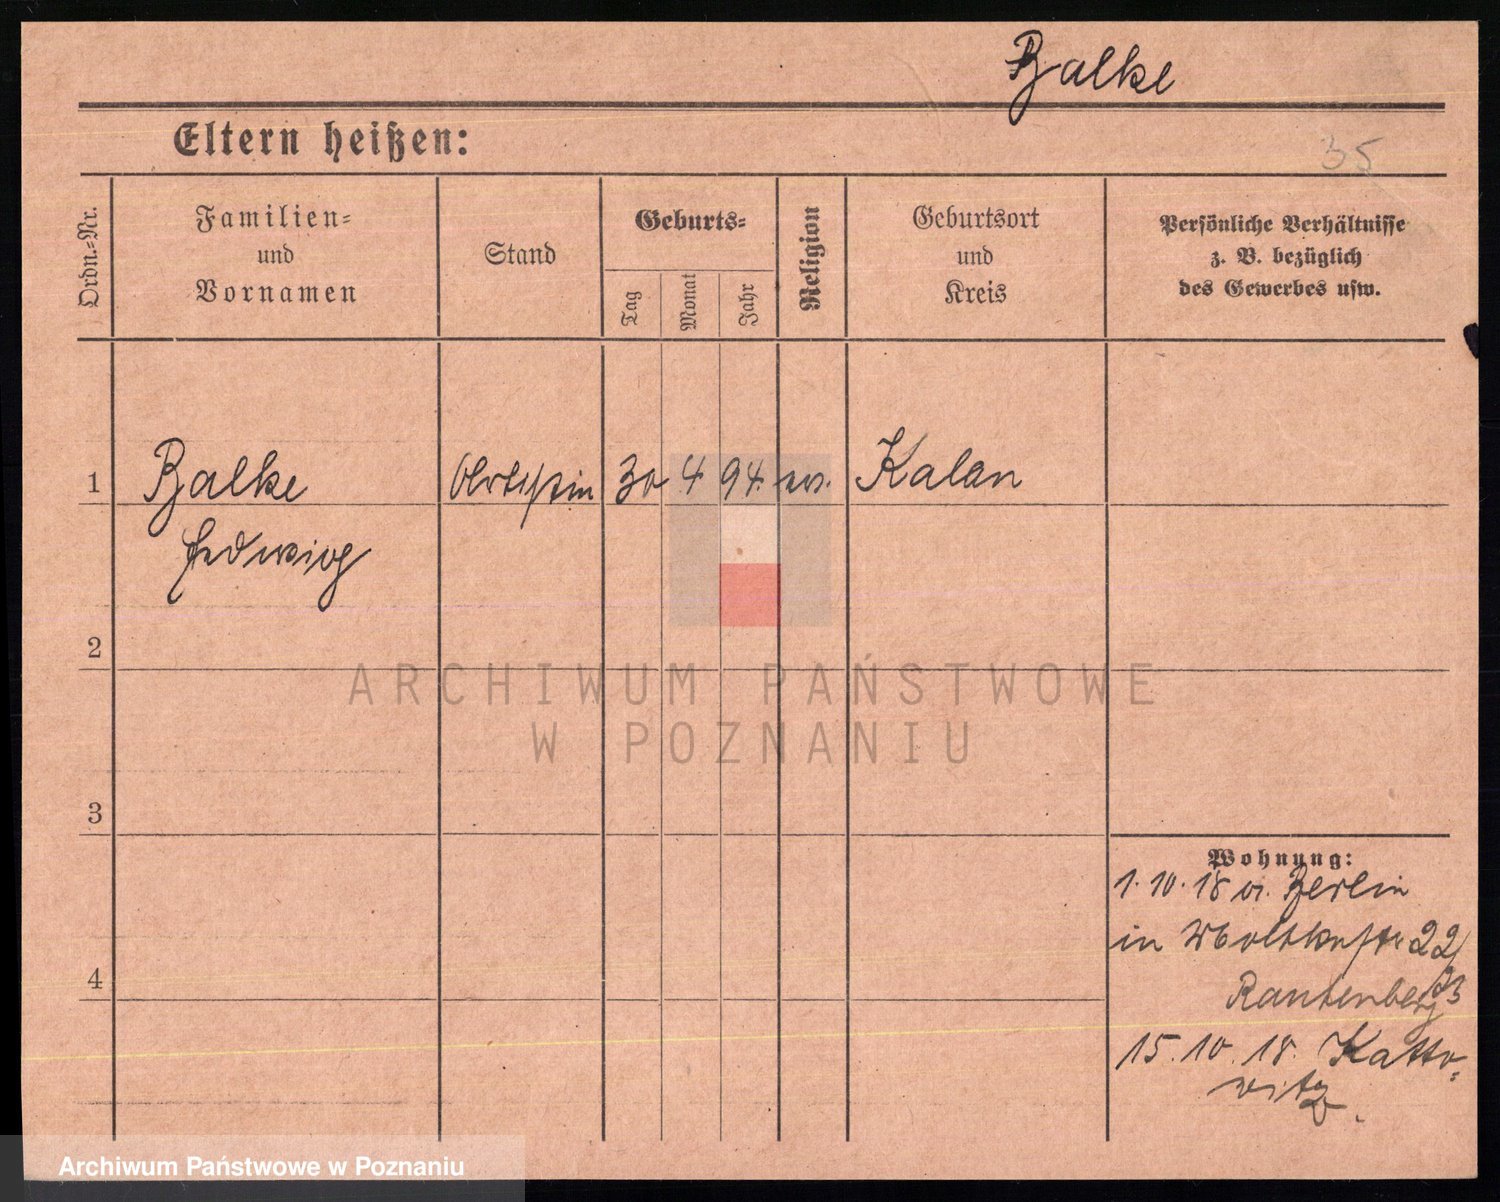 Balke
Eltern heißen:
35
Ordn.-Nr.
Familien-
und
Vornamen
Stand
Geburts-
Tag
Monat
Jahr
Religion
Geburtsort
und
Kreis
Persönliche Verhältnisse
z. B. bezüglich
des Gewerbes usw.
1 Balke 30 4 94. ev. Kalau
Hedwig
2
3
4
Wohnung:
1. 10. 18 v. Berlin
in Moltkestr. 22/
23
Rautenberg
15. 10. 18. Katto-
witz.
ARCHIWUM PAŃSTWOWE
W POZNANIU
Archiwum Państwowe w Poznaniu